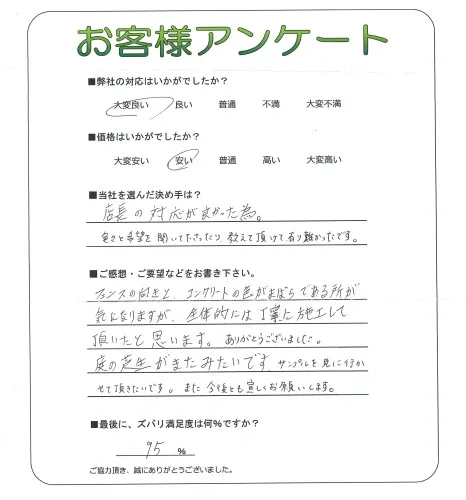 お客様アンケート
■弊社の対応はいかがでしたか？
大変良い 良い 普通 不満 大変不満
■価格はいかがでしたか？
大変安い 安い 普通 高い 大変高い
■当社を選んだ決め手は？
店長の対応がよかった為。
色々と希望を聞いて下さったり 教えて頂けて有り難かったです。
■ご感想・ご要望などをお書き下さい。
フェンスの向きと、コンクリートの色がまばらである所が
気になりますが、全体的には丁寧に施工して
頂いたと思います。ありがとうございました。
庭の芝生がまたみたいです サンプルを見に行か
せて頂きたいです。また今後とも宜しくお願いします。
■最後に、ズバリ満足度は何%ですか？
95 %
ご協力頂き、誠にありがとうございました。